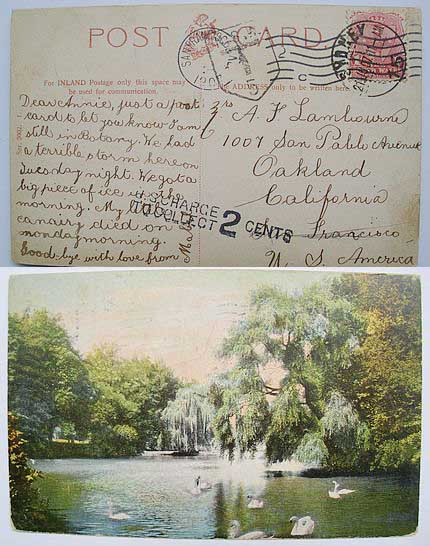 POST CARD
For INLAND Postage only this space may
be used for communication.
The ADDRESS only to be written here.
Dear Annie, just a post
card to let you know I am
still in Botany. We had
a terrible storm here on
Tuesday night. We got a
big piece of ice in the
morning. My
canairy died on
monday morning.
Good-bye with love from
Mrs A. F. Lambourne
1007 San Pablo Avenue
Oakland
California
San Francisco
N. S. America
U.S. CHARGE
TO COLLECT 2 CENTS
SYDNEY
1907